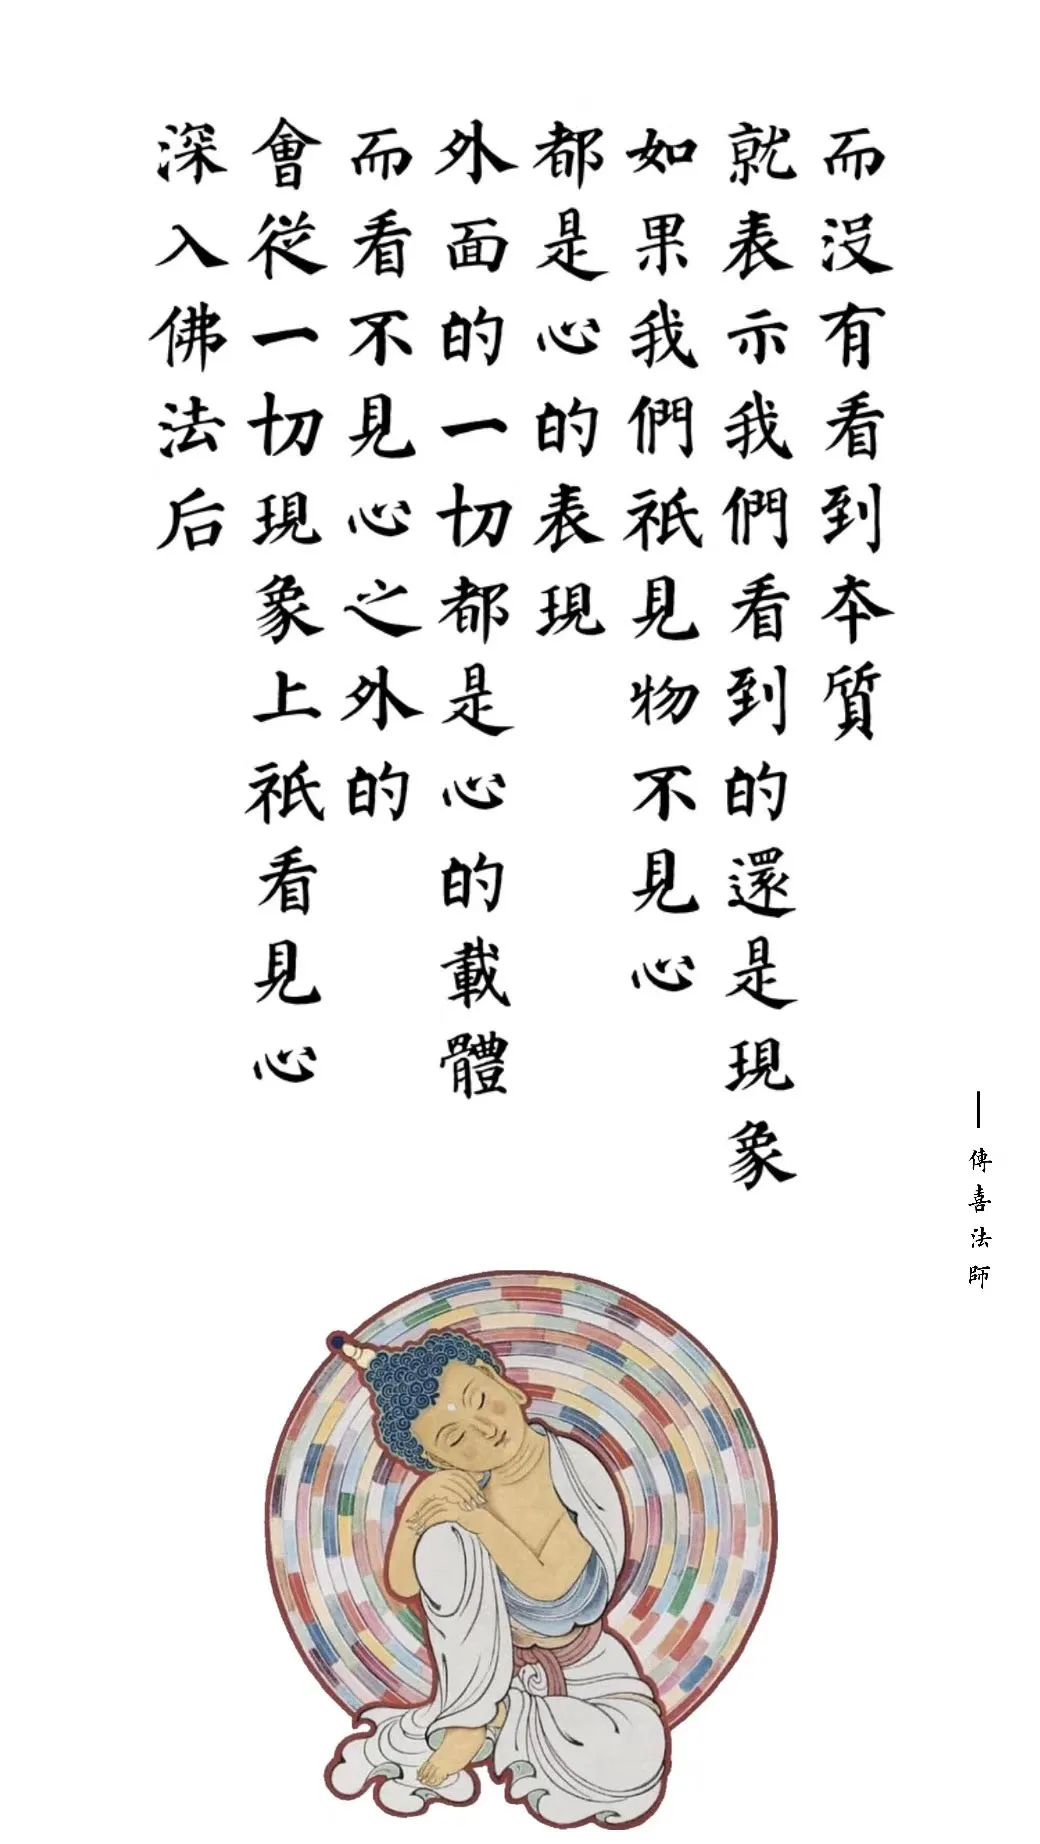 深入佛法后
會從一切現象上祇看見心
而看不見心之外的
外面的一切都是心的載體
都是心的表現
如果我們祇見物不見心
就表示我們看到的還是現象
而沒有看到本質
—傳喜法師